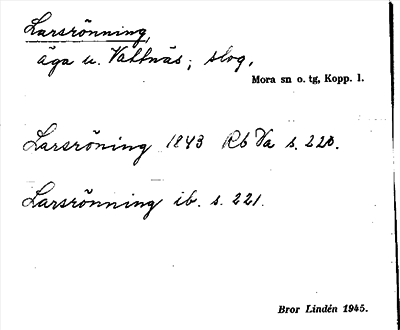 Larsrönning,
äga u. Vattnäs; slog.
Mora sn o. tg, Kopp. l.
Larsröning 1843 Rb Va s. 220.
Larsrönning ib. s. 221.
Bror Lindén 1945.